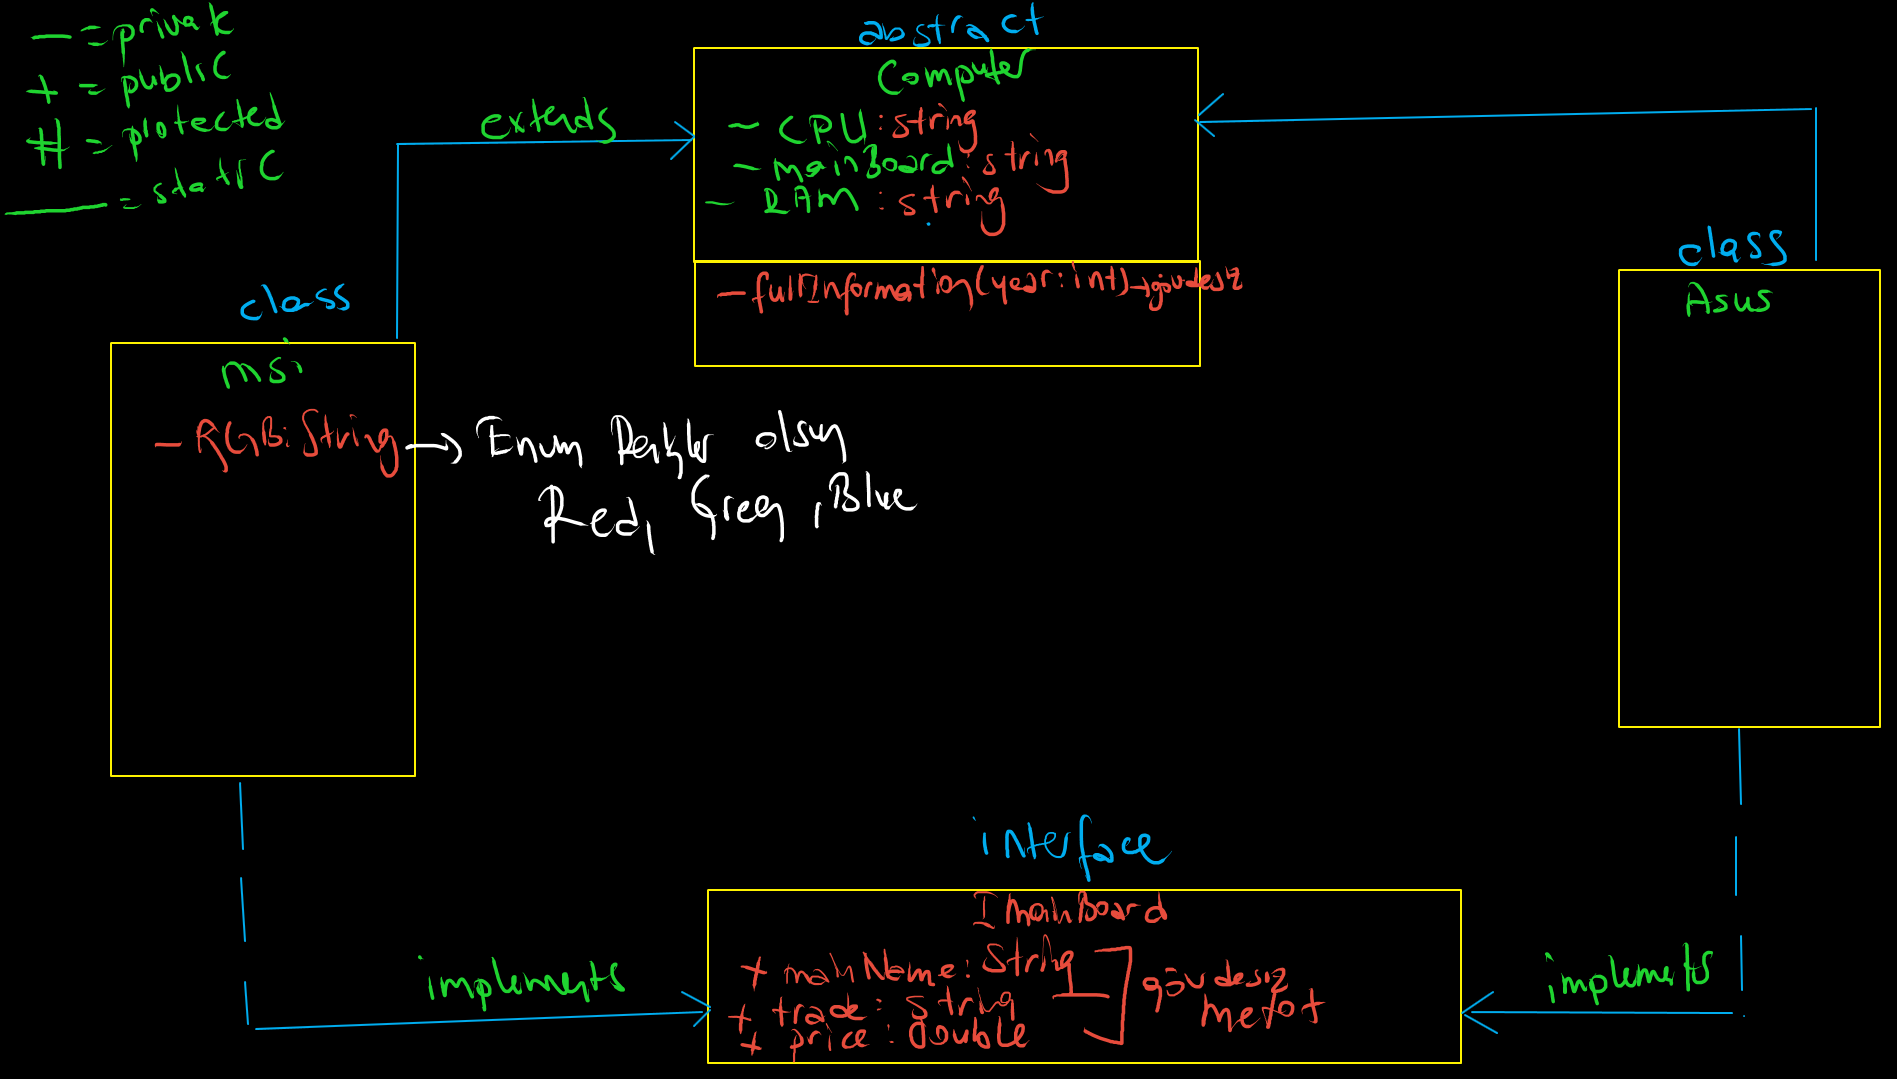 — = private
+ = public
# = protected
___ = static
abstract
Computer
- CPU : string
- mainBoard : string
- RAM : string
- fullInformation(year: int) → gövdesiz
extends
class
msi
- RGB: String → Enum Renkler olsun
Red, Green, Blue
class
Asus
interface
IMainBoard
+ mainName: String
+ trade: String
+ price: double
gövdesiz
metot
implements
implements